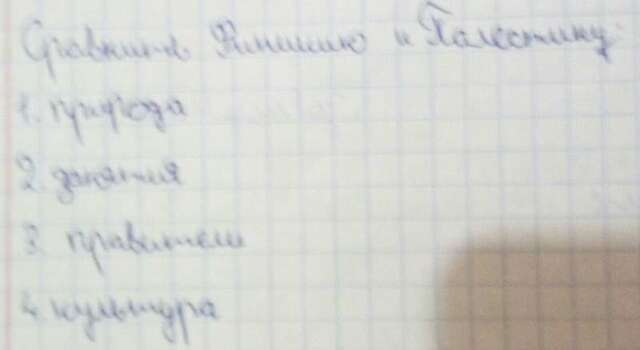 Сравнить Финикию и Палестину:
1. природа
2. занятия
3. правители
4. культура